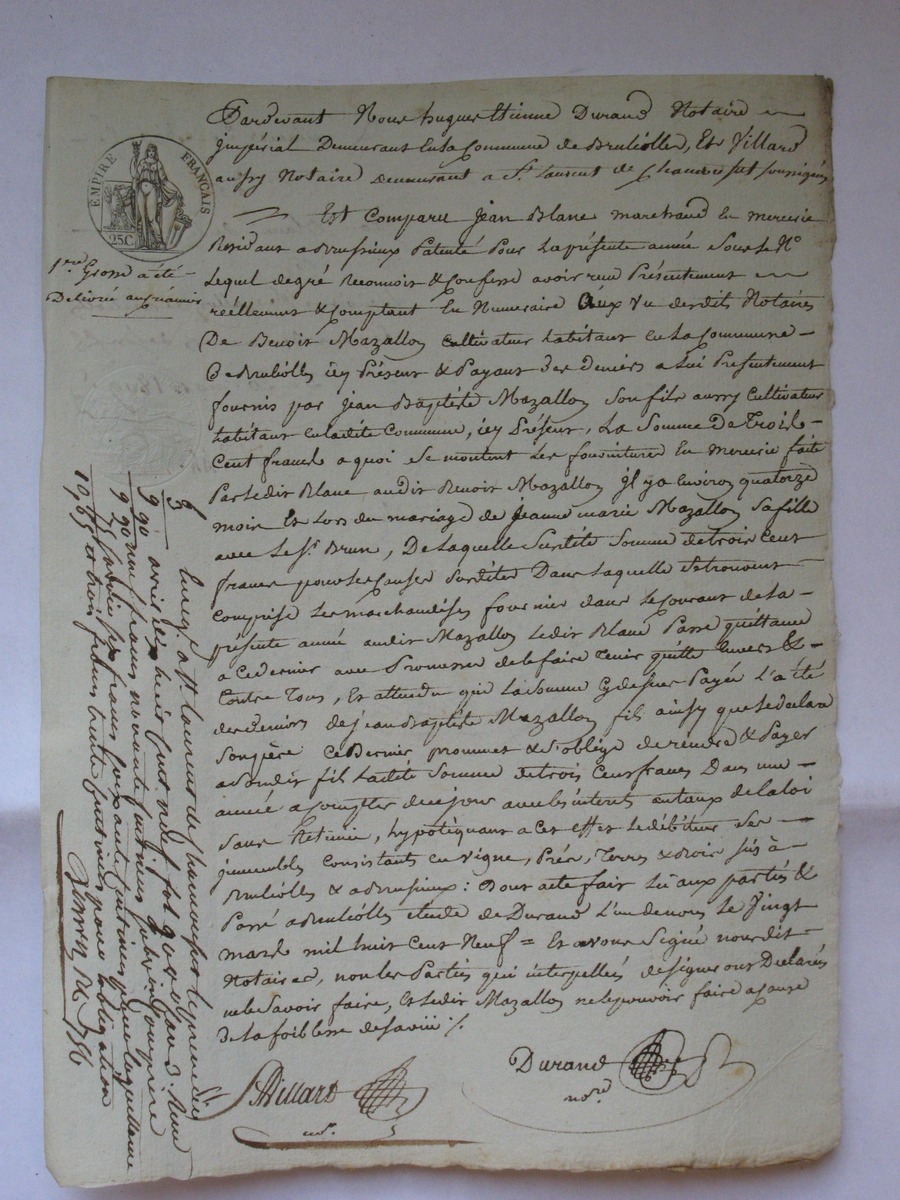 EMPIRE FRANÇAIS
25C
1ere Grosse a été
Délivrée au créancier
Pardevant Nous hugues Etienne Durand Notaire
jmpérial Demeurant En la Commune de Brulliolles, Et Villard
aussy Notaire demeurant a St. Laurent de Chamousset soussignés
Est Comparu jean Blanc marchand En mercerie
Residant a Brussieux Patenté Pour La présente année Sous le No
Lequel de gré Reconnoit & Confesse avoir reçu Présentement
réellement & Comptant En Numeraire Aux Vu desdits Notaires
De Benoit Mazallon Cultivateur habitant En La Commune
De Brulliolles icy Présent & Payant des Deniers a Lui Presentement
fournis par jean Baptiste Mazallon Son fils aussy Cultivateur
habitant En Ladite Commune, icy Présent, La Somme De Trois
Cent francs a quoi Se montent Les fournitures En mercerie faite
Par Ledit Blanc audit Benoit Mazallon jl y a Environ quatorze
mois Et Lors du mariage de jeanne marie Mazallon Sa fille
avec Le Sr. Brun, De Laquelle Susdite Somme de trois Cent
francs pour Les Causes Susdites Dans Laquelle Se trouvent
Comprise Les marchandises fournies dans Le Courant de La
présente année audit Mazallon Ledit Blanc Passe quittance
a Ce dernier avec Promesse de le faire Tenir quitte Envers &
Contre Tous, Et attendu que La Somme Cy dessus Payée L'a été
des deniers de jean Baptiste Mazallon fils ainsy que Le déclare
Son père Ce Dernier prommet & S'oblige de rendre & Payer
a Son dit fils Ladite Somme de trois Cent francs Dans une
année a Compter de ce jour avec Les interets au taux de la Loi
Sans Retenue, hypotéquant a Cet effet Le débiteur Ses
jmmeubles Consistants En vigne, Prés, Terres & Bois Sis à
Brulliolles & a Brussieux : Dont acte fait Lu aux parties &
Passé a Brulliolles étude de Durand L'un de nous Le Vingt
mars mil huit Cent Neuf = Et avons Signé nous dit
Notaires, non les Parties qui interpellées de Signer ont Déclarés
ne le Savoir faire, Et Ledit Mazallon ne le pouvoir faire a Cause
De La foiblesse de Sa vüe /.
Villard
nre.
Durand
nore.
Enreg. a St. Laurent de chamousset le
avril
neuf francs nonante centimes
francs soixante centimes pour
et trois francs trente centimes pour l'obligation